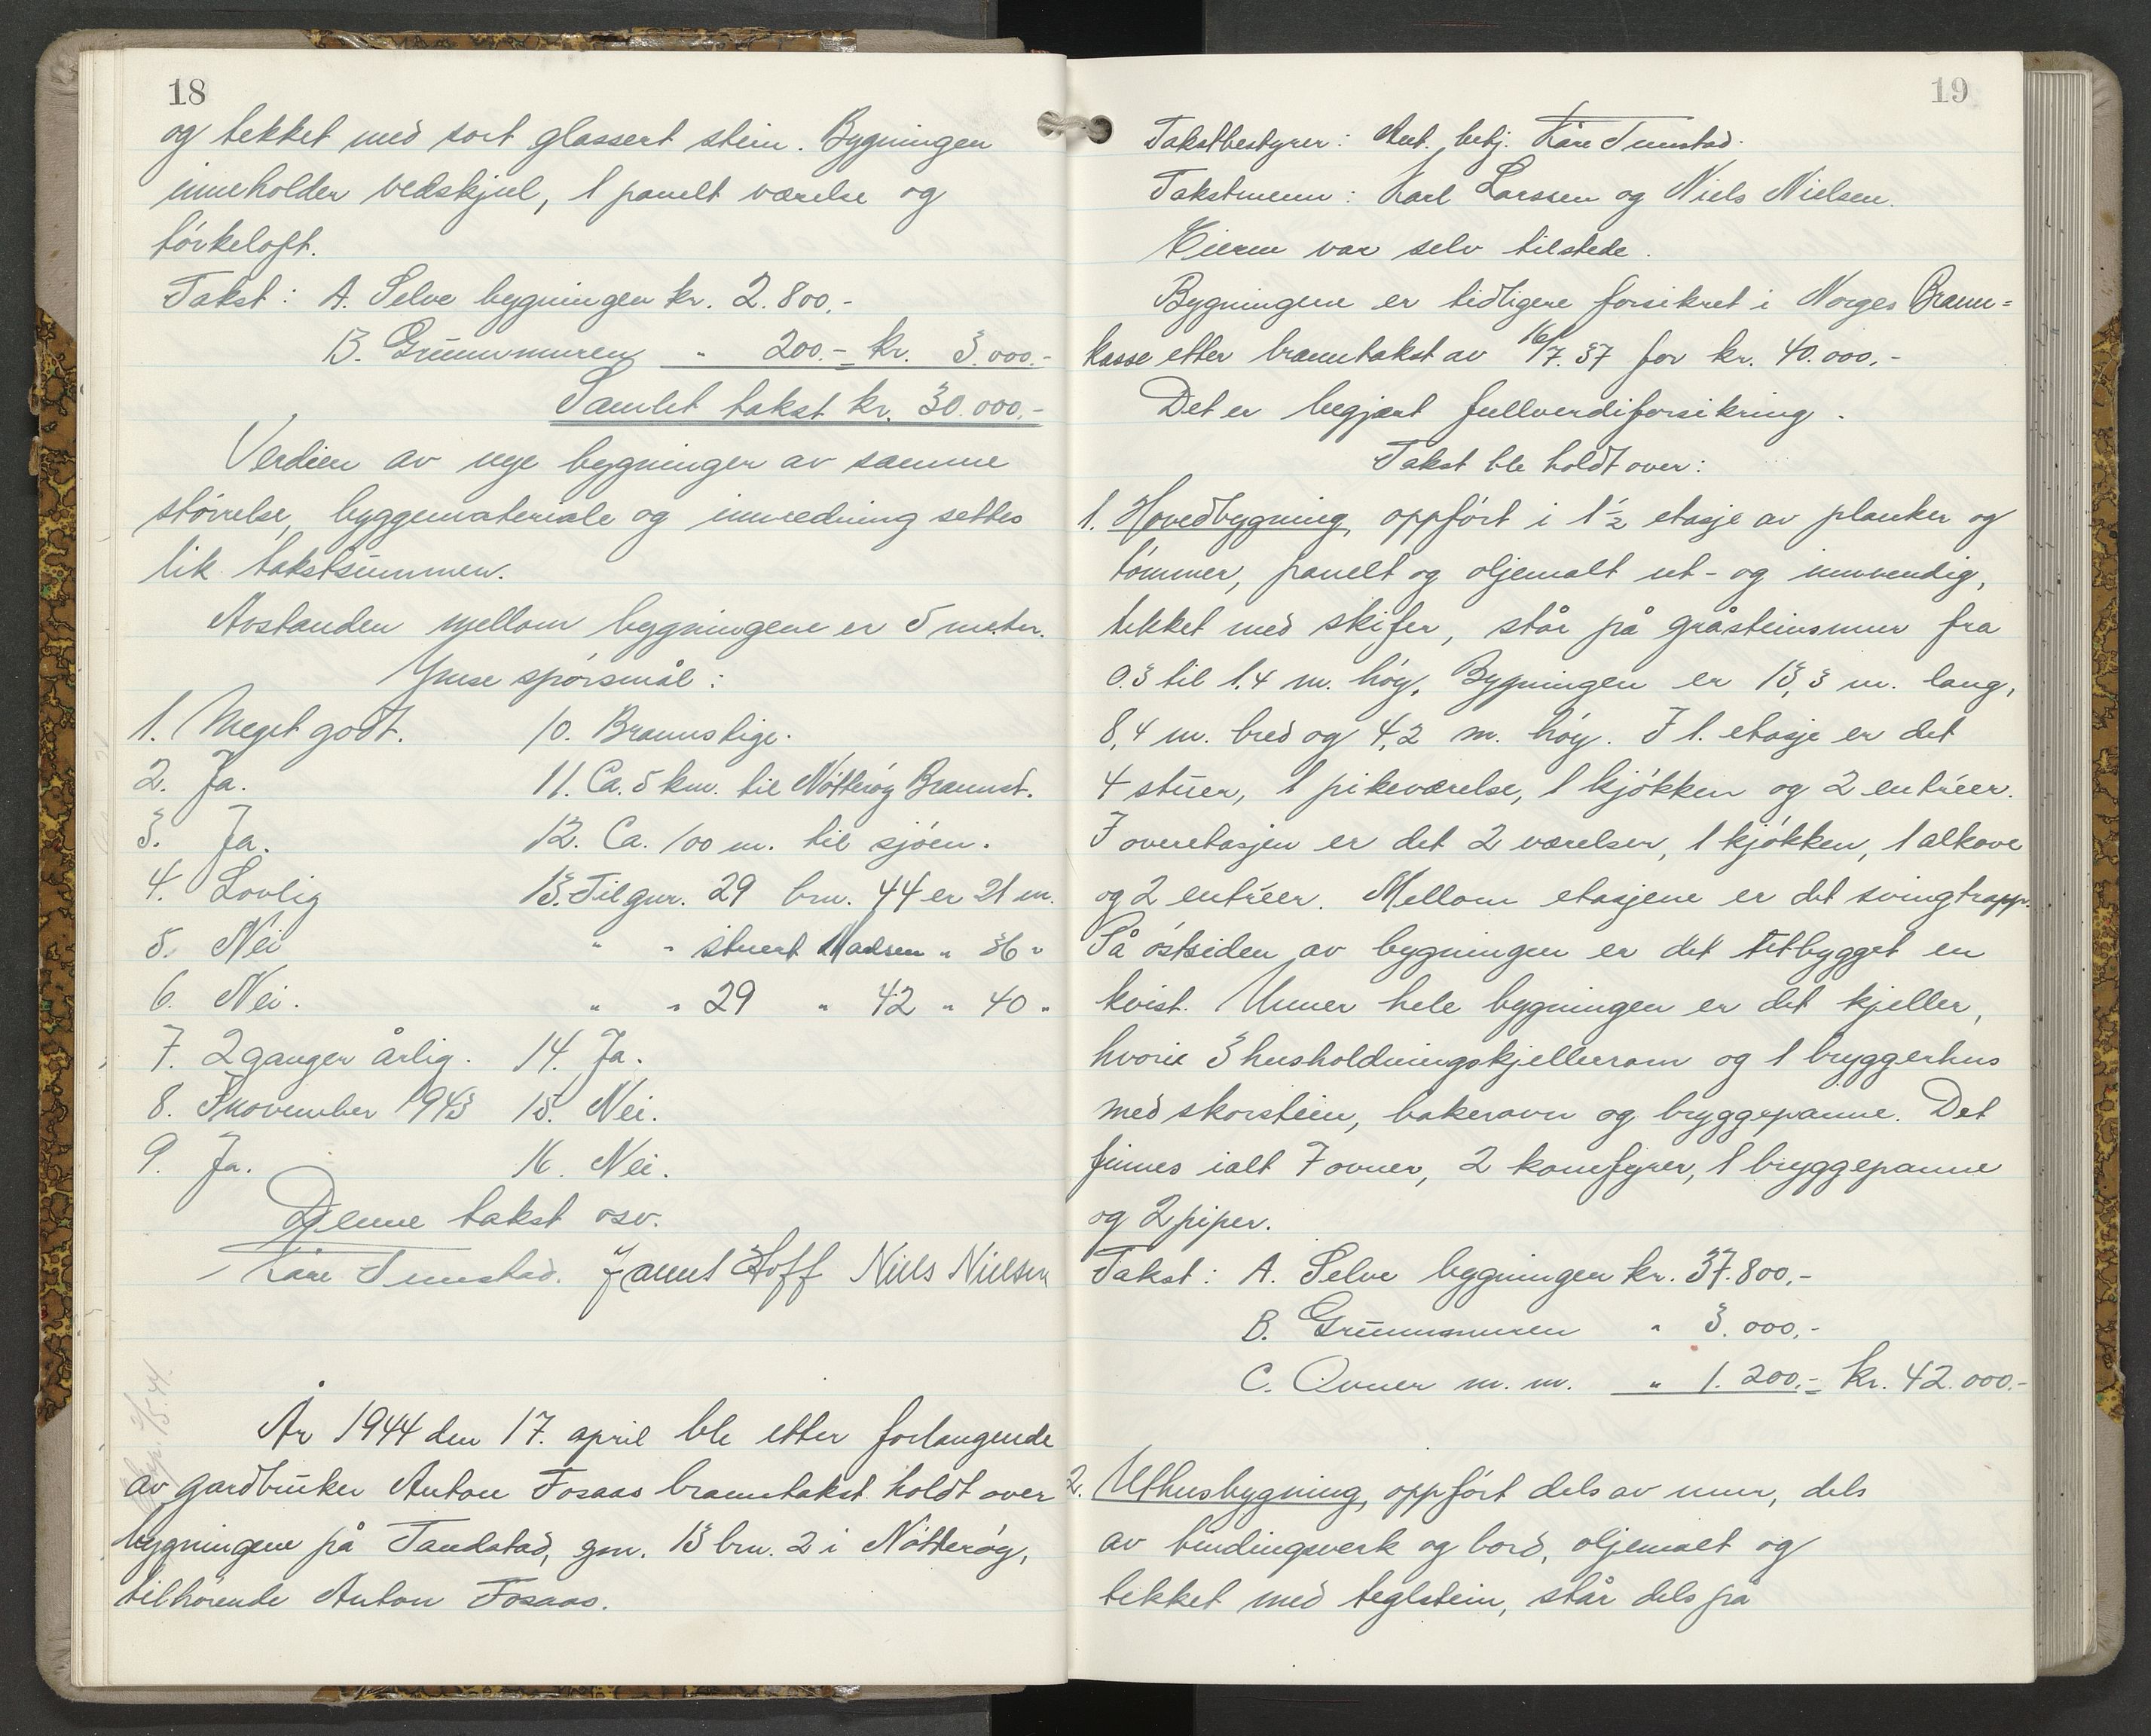 18
og tekket med sort glassert stein. Bygningen
inneholder vedskjul, 1 panelt værelse og
tørkeloft.
Takst: A. Selve bygningen kr. 2.800,-
B. Grunnmuren " 200.- kr. 3.000.-
Samlet takst kr. 30.000,-
Verdien av nye bygninger av samme
størrelse, byggemateriale og innredning settes
lik takstsummen.
Avstanden mellom bygningene er 5 meter.
Ymse spørsmål:
1. Meget godt. 10. Brannstige.
2. Ja. 11. Ca. 5 km. til Nøtterøy Brannst.
3. Ja. 12. Ca. 100 m. til sjøen.
4. Lovlig 13. Til gnr. 29 bnr. 44 er 21 m.
5. Nei " " stuert Madsen " 36 "
6. Nei. " " 29 " 42 " 40 "
7. 2 ganger årlig. 14. Ja.
8. I november 1943 15. Nei.
9. Ja. 16. Nei.
Denne takst osv.
Kåre Tunstad. Hoff Niels Nielsen
År 1944 den 17. april ble etter forlangende
av gardbruker Anton Fosaas branntakst holdt over
bygningene på Tandstad, gnr. 13 bnr. 2 i Nøtterøy,
tilhørende Anton Fosaas.
19
Takstbestyrer: Aut. betj. Kåre Tunstad.
Takstmenn: Karl Larssen og Niels Nielsen.
Eieren var selv tilstede.
Bygningene er tidligere forsikret i Norges Brann=
kasse etter branntakst av 16/7.37 for kr. 40.000,-
Det er begjært fullverdiforsikring.
Takst ble holdt over:
1. Hovedbygning, oppført i 1 1/2 etasje av planker og
tømmer, panelt og oljemalt ut- og innvendig,
tekket med skifer, står på gråsteinsmur fra
0.3 til 1.4 m. høy. Bygningen er 13,3 m. lang,
8,4 m. bred og 4,2 m. høy. I 1. etasje er det
4 stuer, 1 pikeværelse, 1 kjøkken og 2 entréer.
I overetasjen er det 2 værelser, 1 kjøkken, 1 alkove
og 2 entréer. Mellom etasjene er det svingtrapp.
På østsiden av bygningen er det tilbygget en
kvist. Unner hele bygningen er det kjeller,
hvorie 3 husholdningskjellerrom og 1 bryggerhus
med skorstein, bakerovn og bryggepanne. Det
finnes ialt 7 ovner, 2 komfyrer, 1 bryggepanne
og 2 piper.
Takst: A. Selve bygningen kr. 37.800,-
B. Grunnmuren " 3.000,-
C. Ovner m. m. " 1.200,- kr. 42.000.-
2. Uthusbygning, oppført dels av mur, dels
av bindingsverk og bord, oljemalt og
tekket med teglstein, står dels på